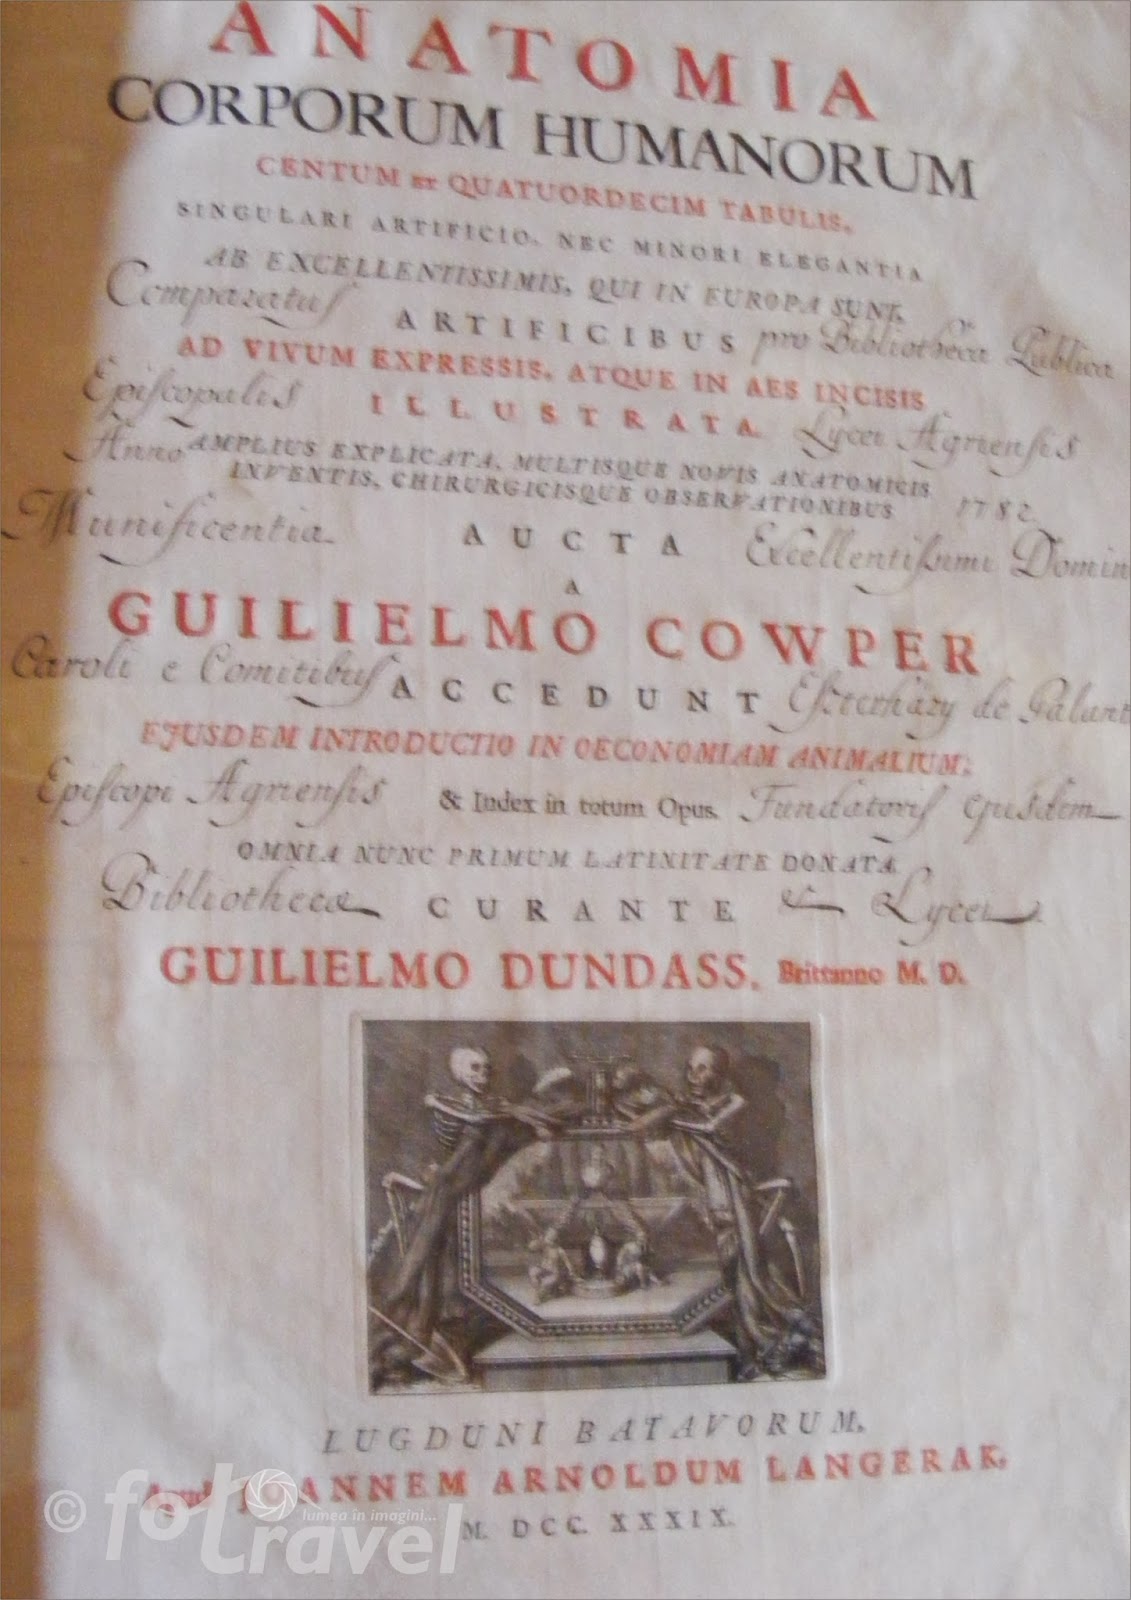 ANATOMIA
CORPORUM HUMANORUM
CENTUM ET QUATUORDECIM TABULIS,
SINGULARI ARTIFICIO, NEC MINORI ELEGANTIA
AB EXCELLENTISSIMIS, QUI IN EUROPA SUNT,
Comparatus ARTIFICIBUS pro Bibliotheca Publica
AD VIVUM EXPRESSIS, ATQUE IN AES INCISIS
Episcopalis ILLUSTRATA. Lycei Agriensis
Anno AMPLIUS EXPLICATA, MULTISQUE NOVIS ANATOMICIS
INVENTIS, CHIRURGICISQUE OBSERVATIONIBUS 1782.
Munificentia AUCTA Excellentissimi Domin
A
GUILIELMO COWPER
Caroli e Comitibus ACCEDUNT Eszterházy de Galant
EJUSDEM INTRODUCTIO IN OECONOMIAM ANIMALIUM,
Episcopi Agriensis & Index in totum Opus. Fundatoris ejusdem
OMNIA NUNC PRIMUM LATINITATE DONATA
Bibliothecæ CURANTE & Lycei
GUILIELMO DUNDASS, Brittanno M. D.
LUGDUNI BATAVORUM,
Apud JOANNEM ARNOLDUM LANGERAK,
M. DCC. XXXIX.
© fototravel
lumea in imagini...